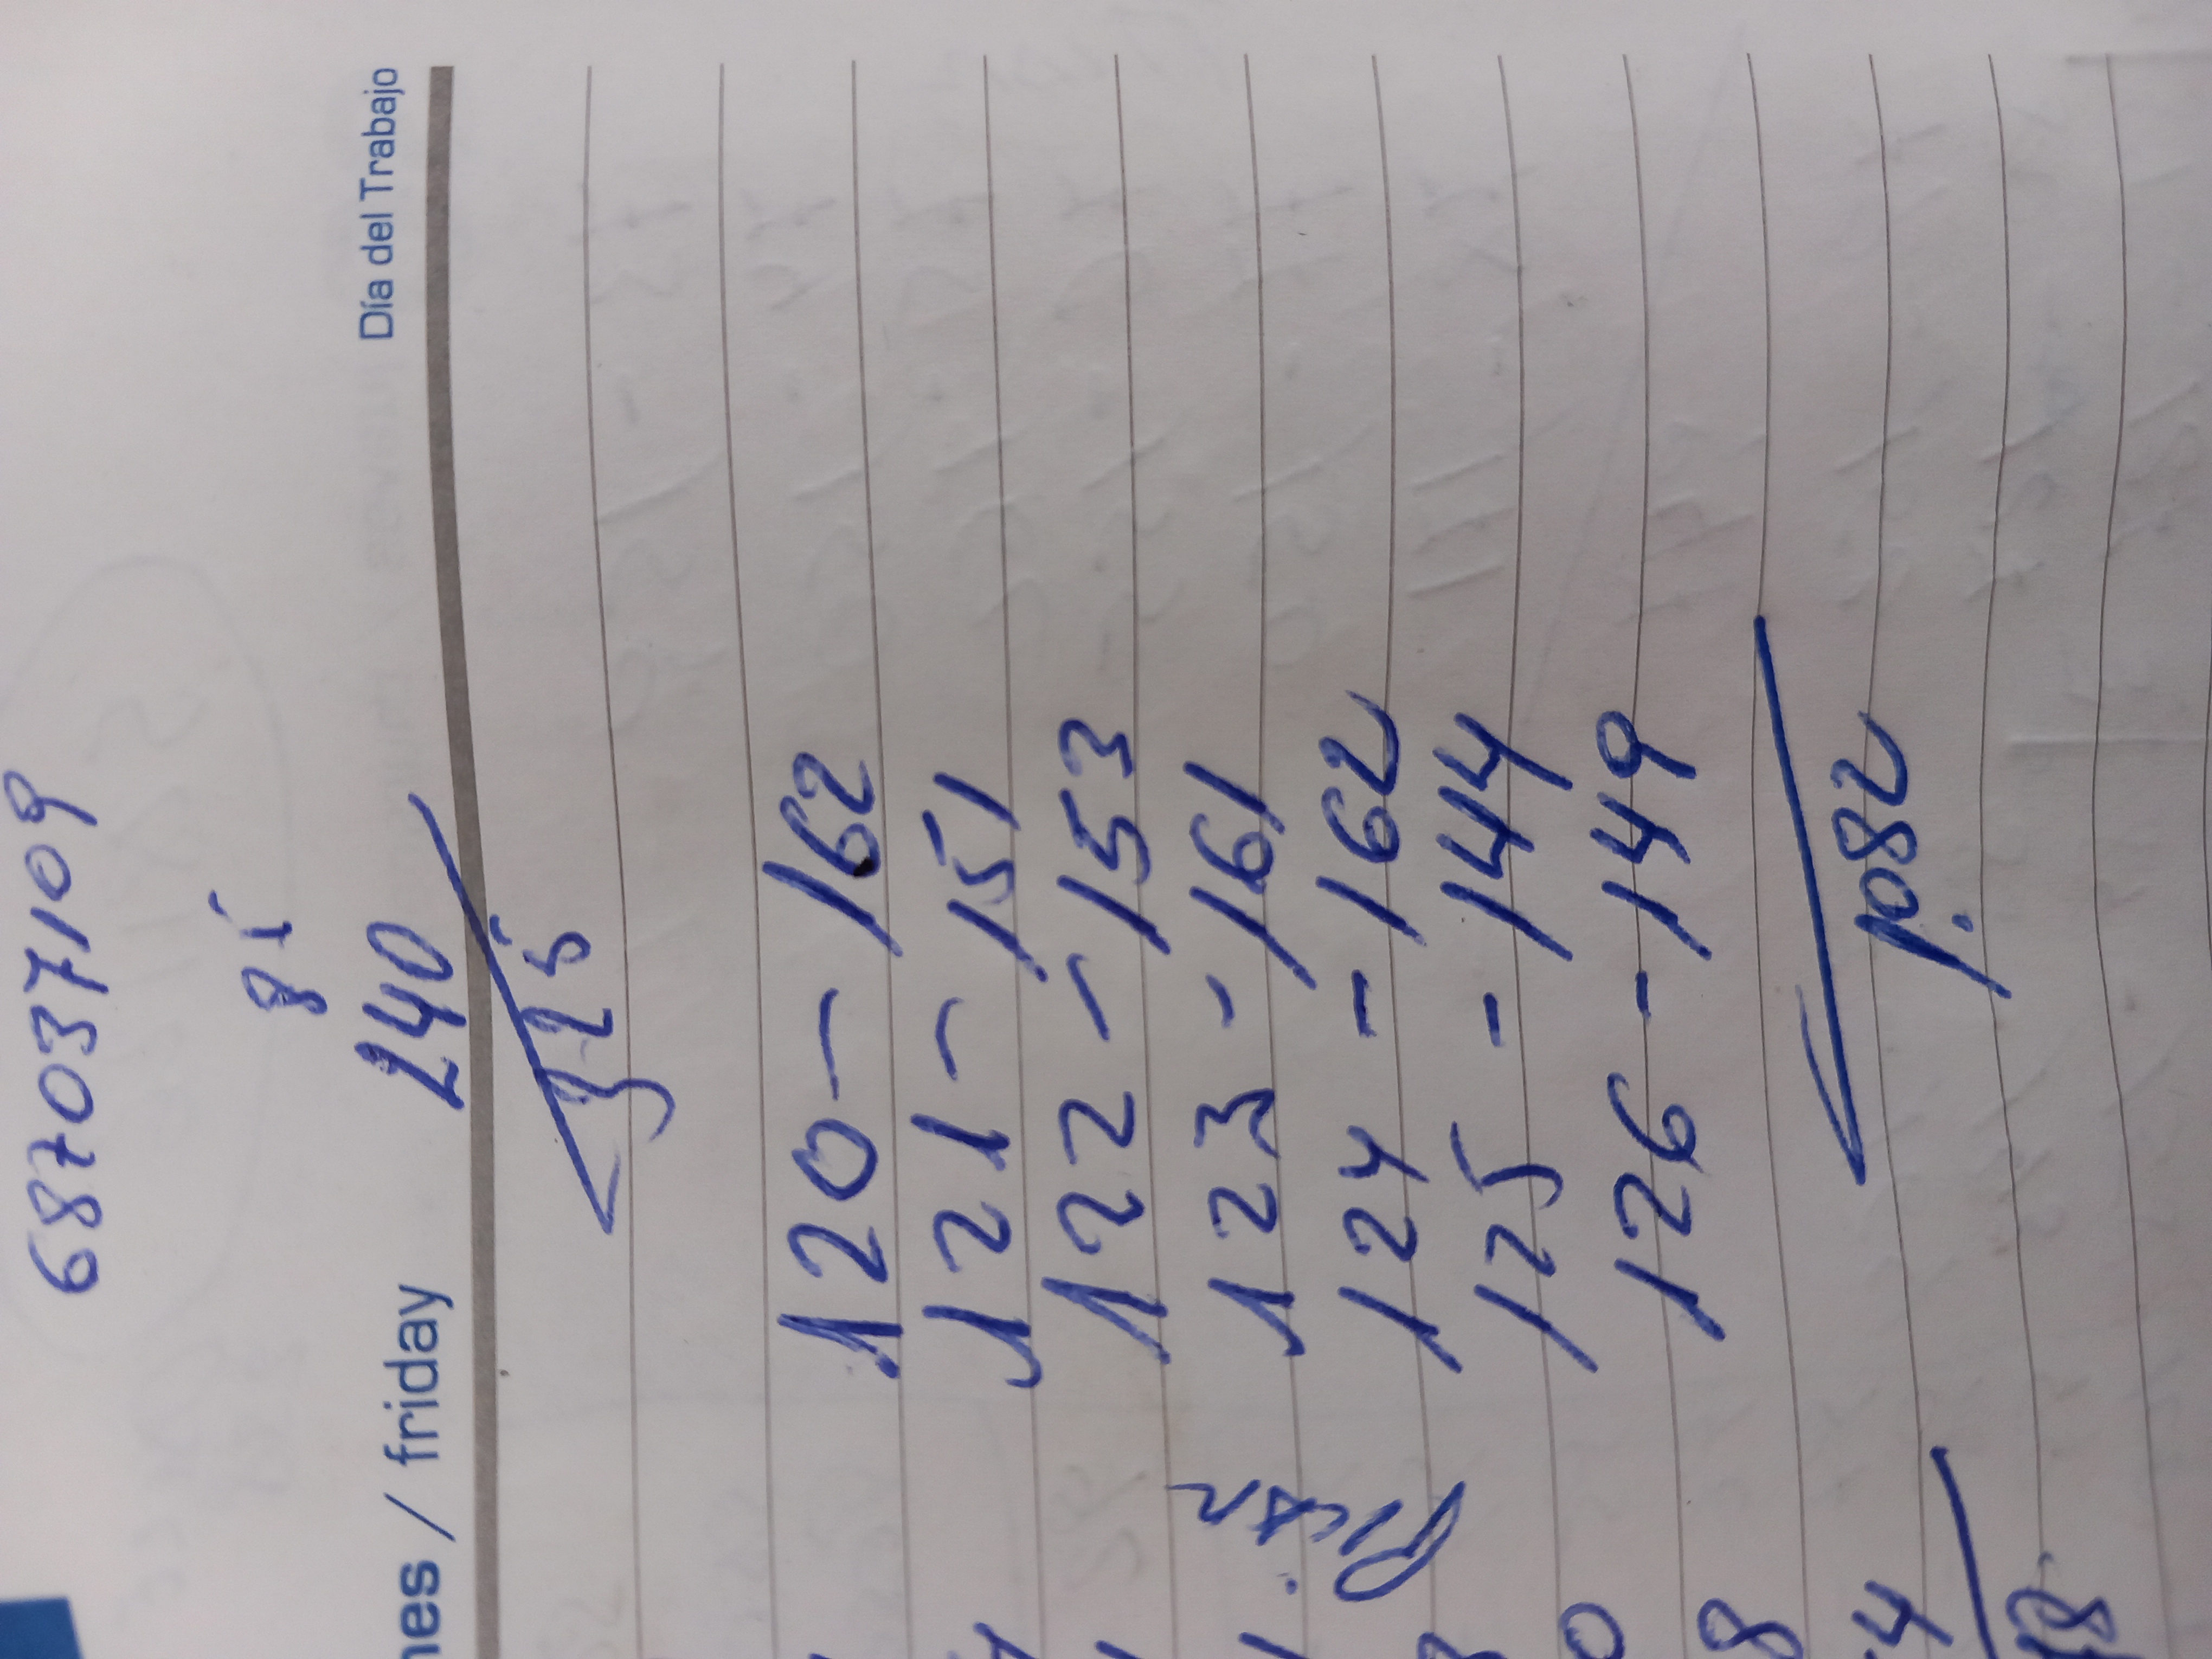 687037109
81
nes / friday
240
Día del Trabajo
325
120 - 162
121 - 151
122 - 153
123 - 161
124 - 162
125 - 144
126 - 149
1.082